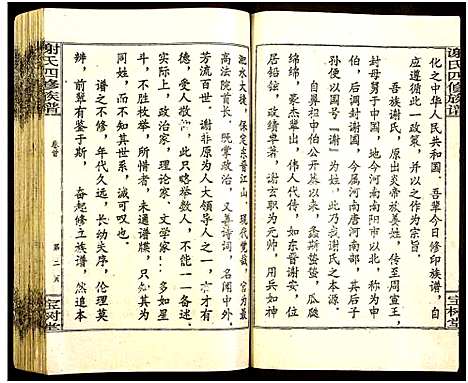 谢氏四修族谱
化之中华人民共和国。吾辈今日修印族谱，自
应遵循此一政策，并以之作为宗旨
吾族谢氏，原出炎帝族姜姓，传于周宣王，
封母舅于申国，地今河南南阳市以北，称为申
伯，后调封谢国，今属河南唐河县南，其后子
孙便以国号“谢”为姓，此乃我谢氏之本源。
自鼻祖申伯公开基以来，螽斯蛰蛰，瓜瓞
绵绵，豪杰辈出，伟人代传，如东晋谢安，位
居铅铉，政绩卓著，谢玄职为元帅，用兵如神
淝水大战，保定东晋江山，现代党哉，官为最
高法院首长，既掌政治，又善诗词，名闻中外，
芳流百世，谢非原为人大代表，才有
德，受人敬，此只略举数人，不能一一备述。
实际上，政治家，理论家、文学家，多如星
斗，不胜枚举，所惜者，未通谱牒，只知其人
同姓，而不知其世系，诚可叹也。
谱之不修，年代久远，长幼失序，伦理莫
辨，前辈有鉴于斯，奋起修立族谱，然追本
谢氏四修族谱
卷首
第二页
宝树堂
宝树堂